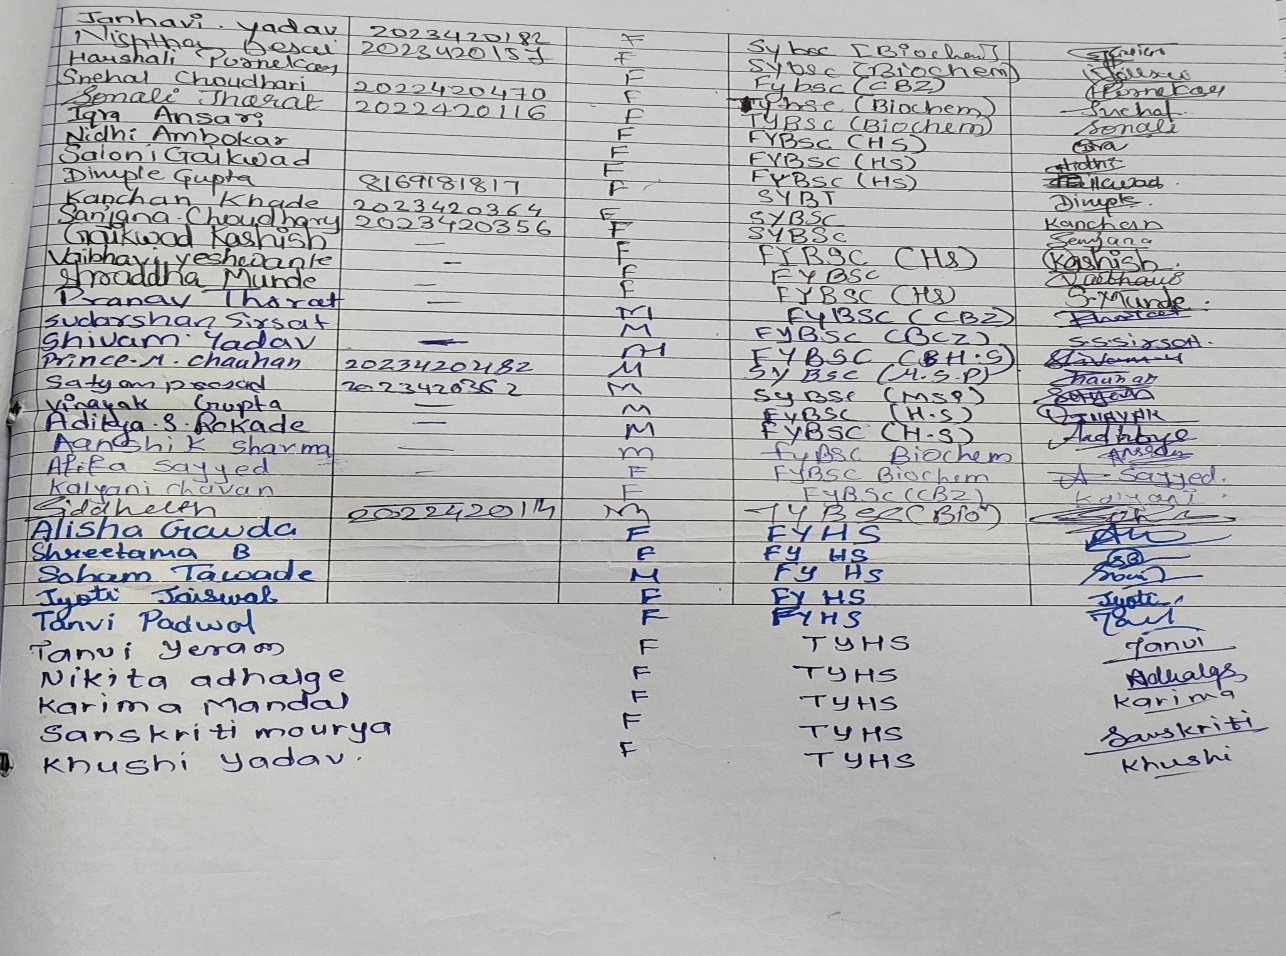 Janhavi. yadav 2023420182 F Sybsc [Biochem]
Nishtha Desai 2023420157 F SYbsc (Biochem)
Harshali Pornekar F Fybsc (CBZ) HPornekar
Snehal Choudhari 2022420470 F Tybsc (Biochem) Snehal
Sonali Tharat 2022420116 F TYBSc (Biochem) Sonali
Iqra Ansari F FYBSC (HS) Iqra
Nidhi Ambokar F FYBSC (HS) Nidhi
Saloni Gaikwad F FYBSC (HS)
Dimple Gupta 8169181817 F SYBT Dimple.
Kanchan Khade 2023420364 F SYBSC Kanchan
Sanjana. Choudhary 2023420356 F SYBSC Sanjana
Gaikwad Kashish — F FYBSC (HS) Kashish.
Vaibhavi yeshwante — F FYBSC Vaibhavi
Shraddha Munde — F FYBSC (HS) S.Munde.
Pranav Tharat — M FYBSC (CBZ)
Sudarshan Sirsat M FYBSC (BCZ) S.S.Sirsat.
Shivam Yadav — M FYBSC (BH.S)
Prince.M. chauhan 20234202482 M SYBSC (M.S.P) Chauhan
Satyam prasad 2023420362 M SYBSC (MSP)
Vinayak Gupta — M FYBSC (H.S) VINAYAK
Aditya.S.Rokade — M FYBSC (H.S)
Aanshik Sharma — M FyBSC Biochem
Afifa Sayyed — F FYBSC Biochem A Sayyed.
Kalyani chavan F FYBSC (CBZ) Kalyani.
Siddhesh M TYBsc (Bio)
Alisha Gawda F FYHS
Shreetama B F FY HS SB
Soham Tawade M FY HS
Jyoti Jaiswal F FY HS Jyoti
Tanvi Padwal F FYHS
Tanvi Yeram F TYHS Tanvi
Nikita adhalge F TYHS Adhalge
Karima Mandal F TYHS Karima
Sanskriti mourya F TYHS Sanskriti
Khushi yadav. F TYHS Khushi